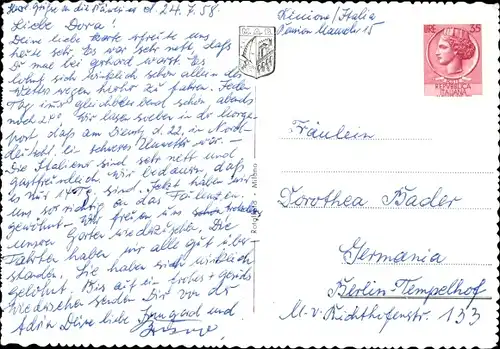 24.7.58.
Liebe Dora!
Deine liebe Karte freute uns
heute sehr. Es war sehr nett, daß
Du mal bei Gerhard warst. Es
lohnt sich wirklich schon allein des
hierher zu fahren. Jeden
Tag
noch 24°. Wir lesen soeben in der
post, daß am Dienst. d. 22, in Nord-
deutschl. ein schweres war.
Die Italiener sind sehr nett und
gastfreundlich. Wir bedauern, daß
es nur 14 Tg. sind. Jetzt haben wir
uns so richtig an das Faulenzen
gewöhnt. Wir freuen uns schon
unsern Garten wiederzusehen. Die
Fahrten haben wir alle gut über-
standen. Sie haben sich wirklich
gelohnt. Bis auf ein frohes + gesundes
Wiedersehen senden Dir von der
Adria Deine liebe Irmgard und
Riccione/Italia
15
LIRE 35
REPVBBLICA
ITALIANA
Milano
Fräulein
Dorothea Bader
Germania
Berlin-Tempelhof
M.-v.-Richthofenstr. 133